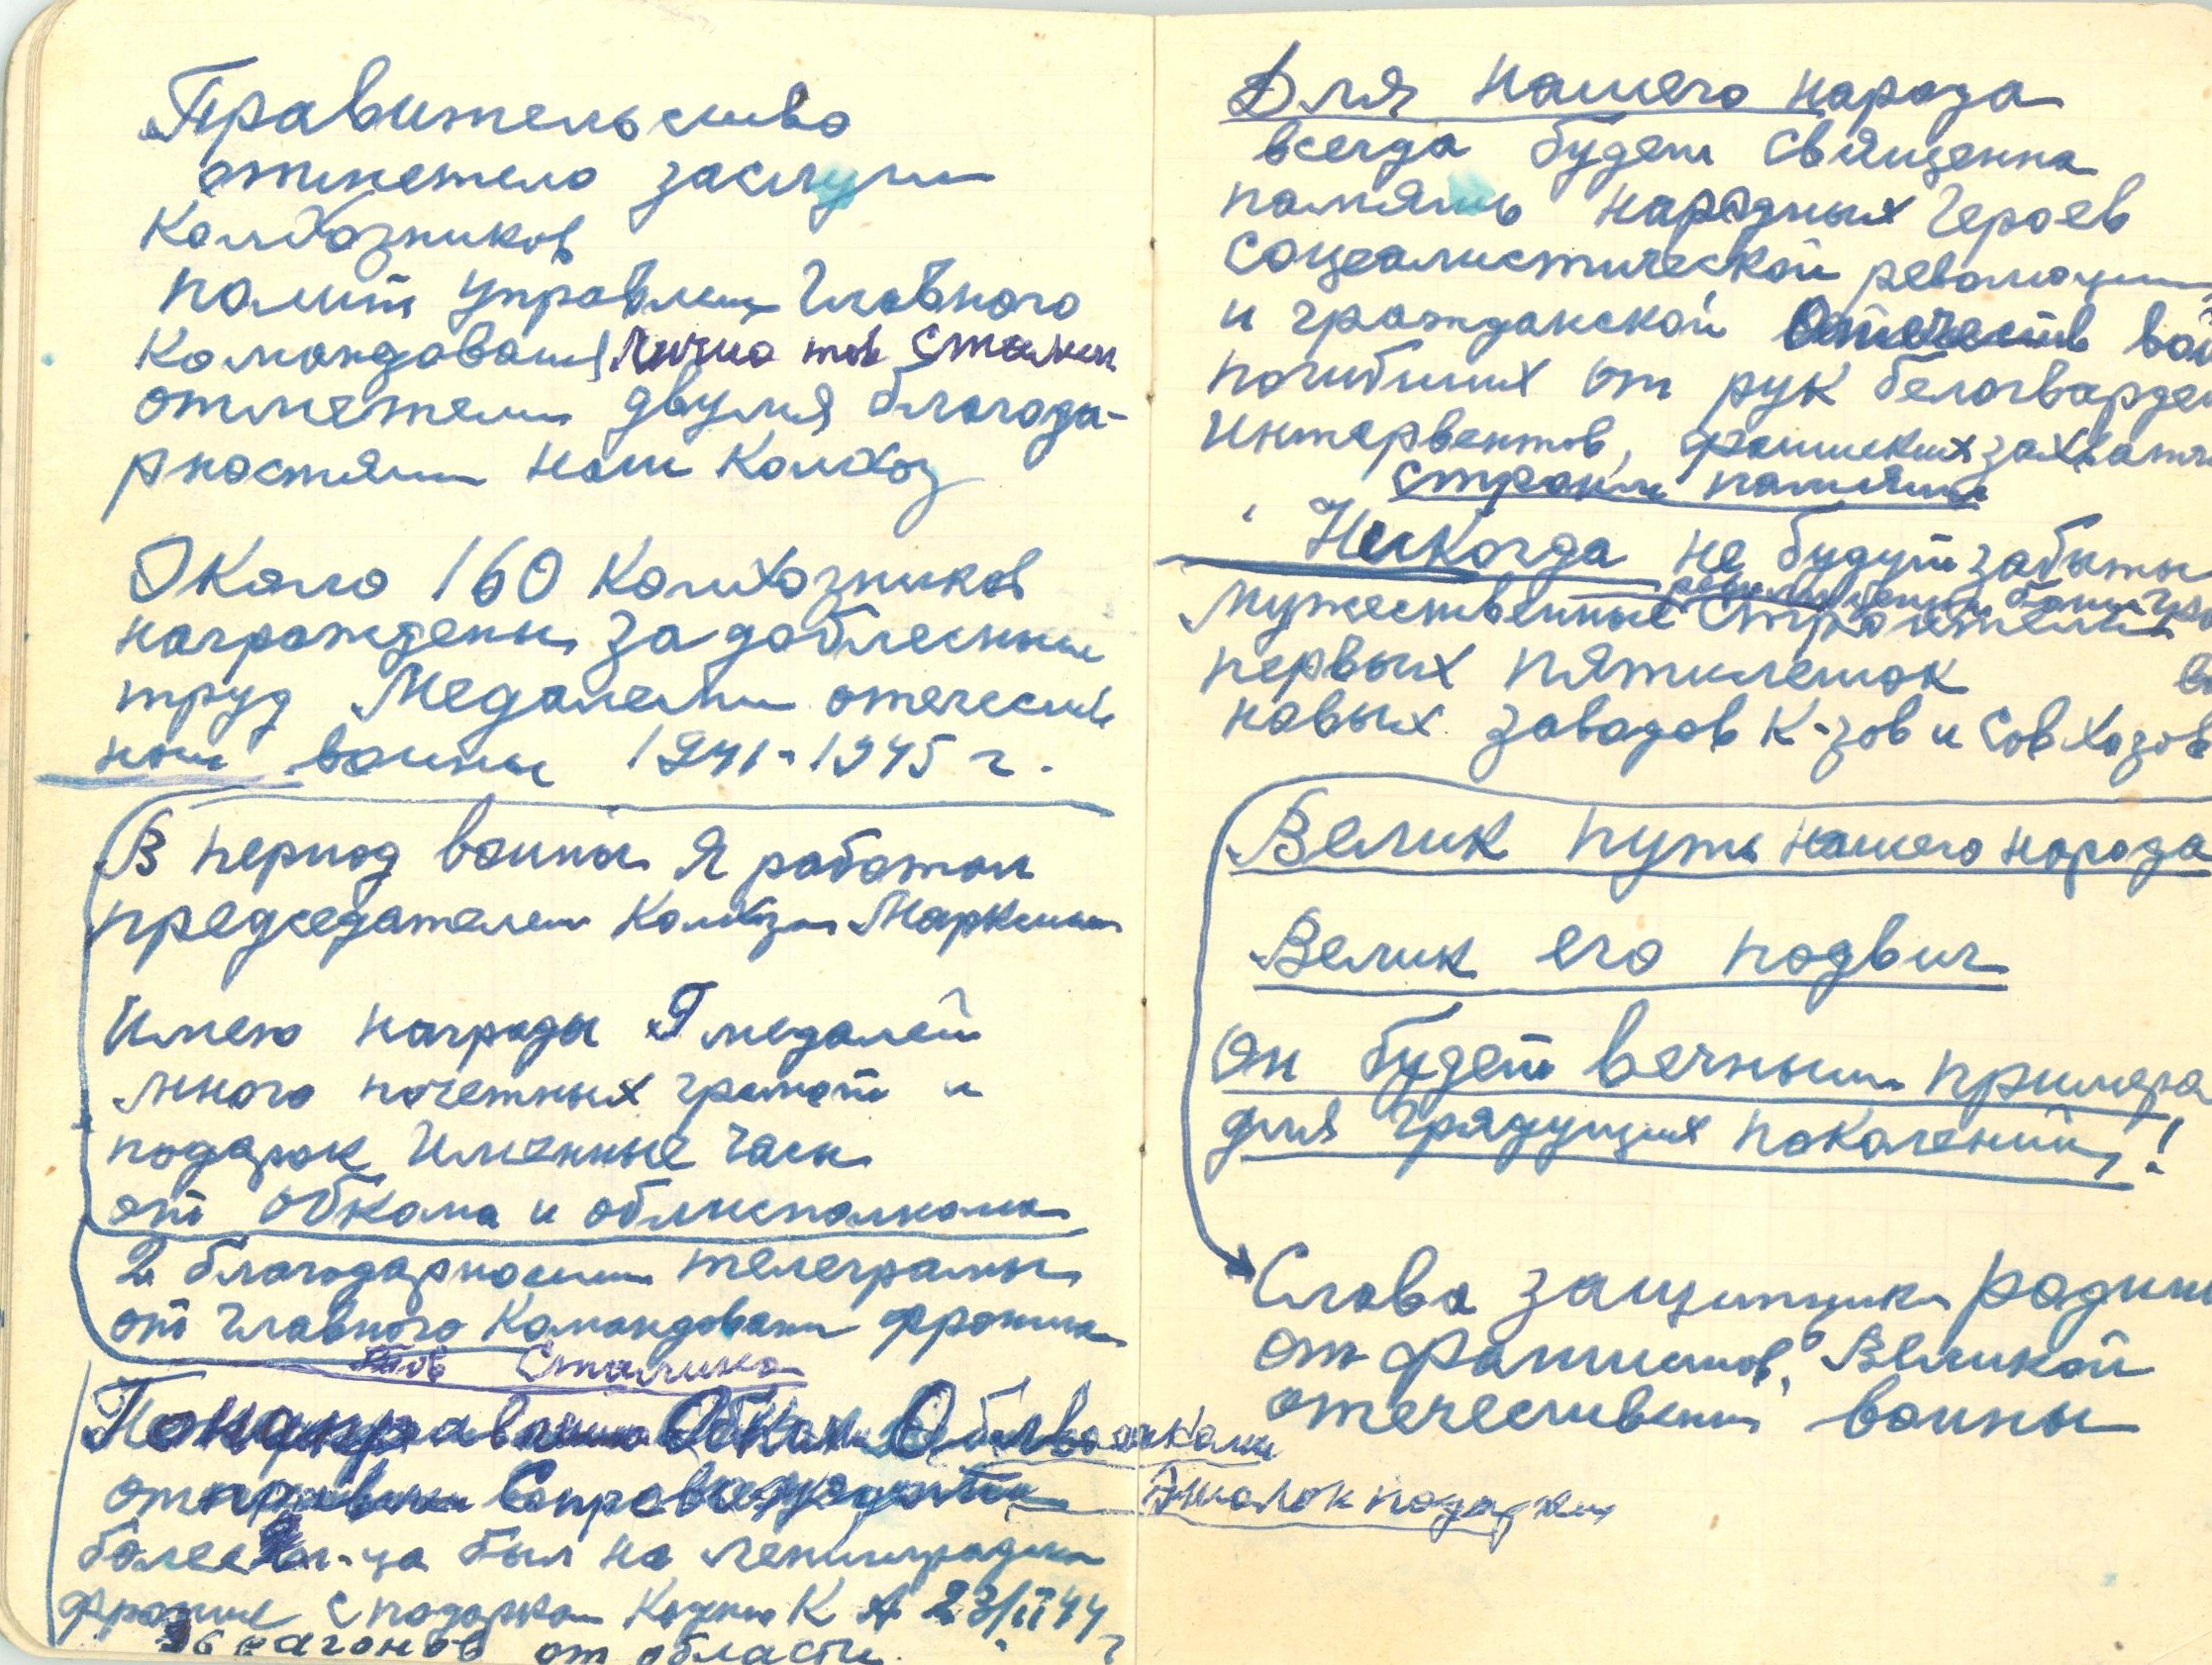 Правительство
отметело заслуги
Колхозников
полит управлен Главного
Командован лично тов Сталин
отметели двумя благода-
рностями наш Колхоз
Около 160 Колхозников
награждены за доблесный
труд Медалеми отечеств
ной воины 1941-1945 г.
В период воины я работал
председателем Колхза Марксист
Имею награды 7 медалей
много почетных грамот и
подарок Именные часы
от обкома и облисполкома
2 благодарности телеграмы
от Главного Командовани фронта
тов Сталина
Обкома
отправки Сопровождать
более м-ца был на Ленинградском
фронте с подарком К А 23/II 44 г
36 вагонов от области.
Для нашего народа
всегда будет священна
память народных Героев
Социалистической революции
и гражданской Отечеств вои
погибших от рук белогвардеи
Интервентов, фашиских захватчи
страни памяти
Никогда не будут забыты
мужественные строители
первых пятилеток
новых заводов К-зов и Совхозов
Велик путь нашего народа
Велик его подвиг
Он будет вечным примера
для грядущих поколений!
Слава защитника родины
от фашистов, в Великой
отечествений воины
подарки